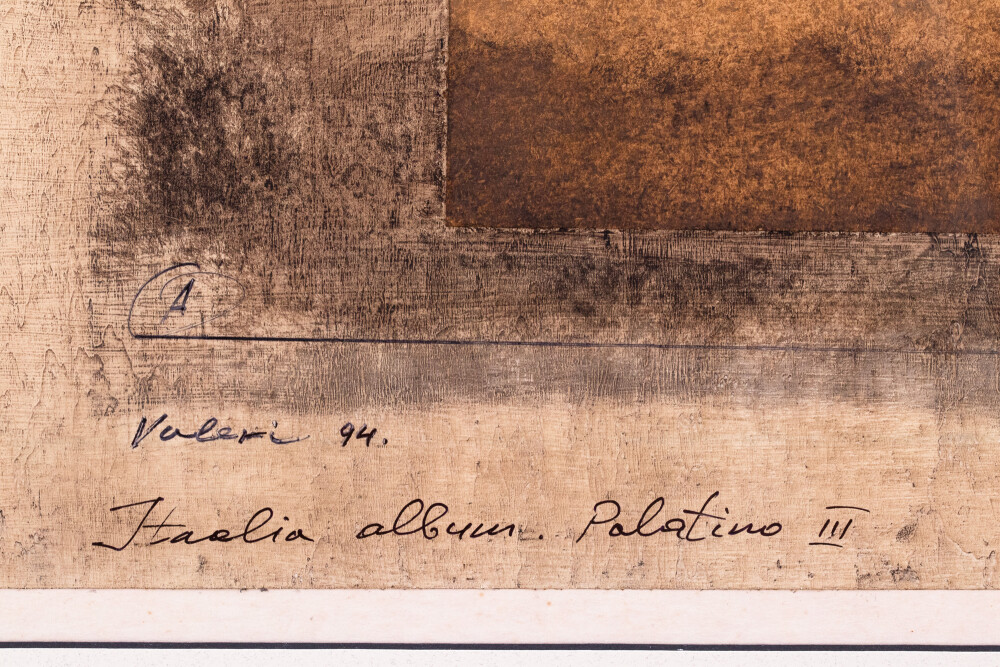 A
Valeri 94.
Itaalia album. Palatino III